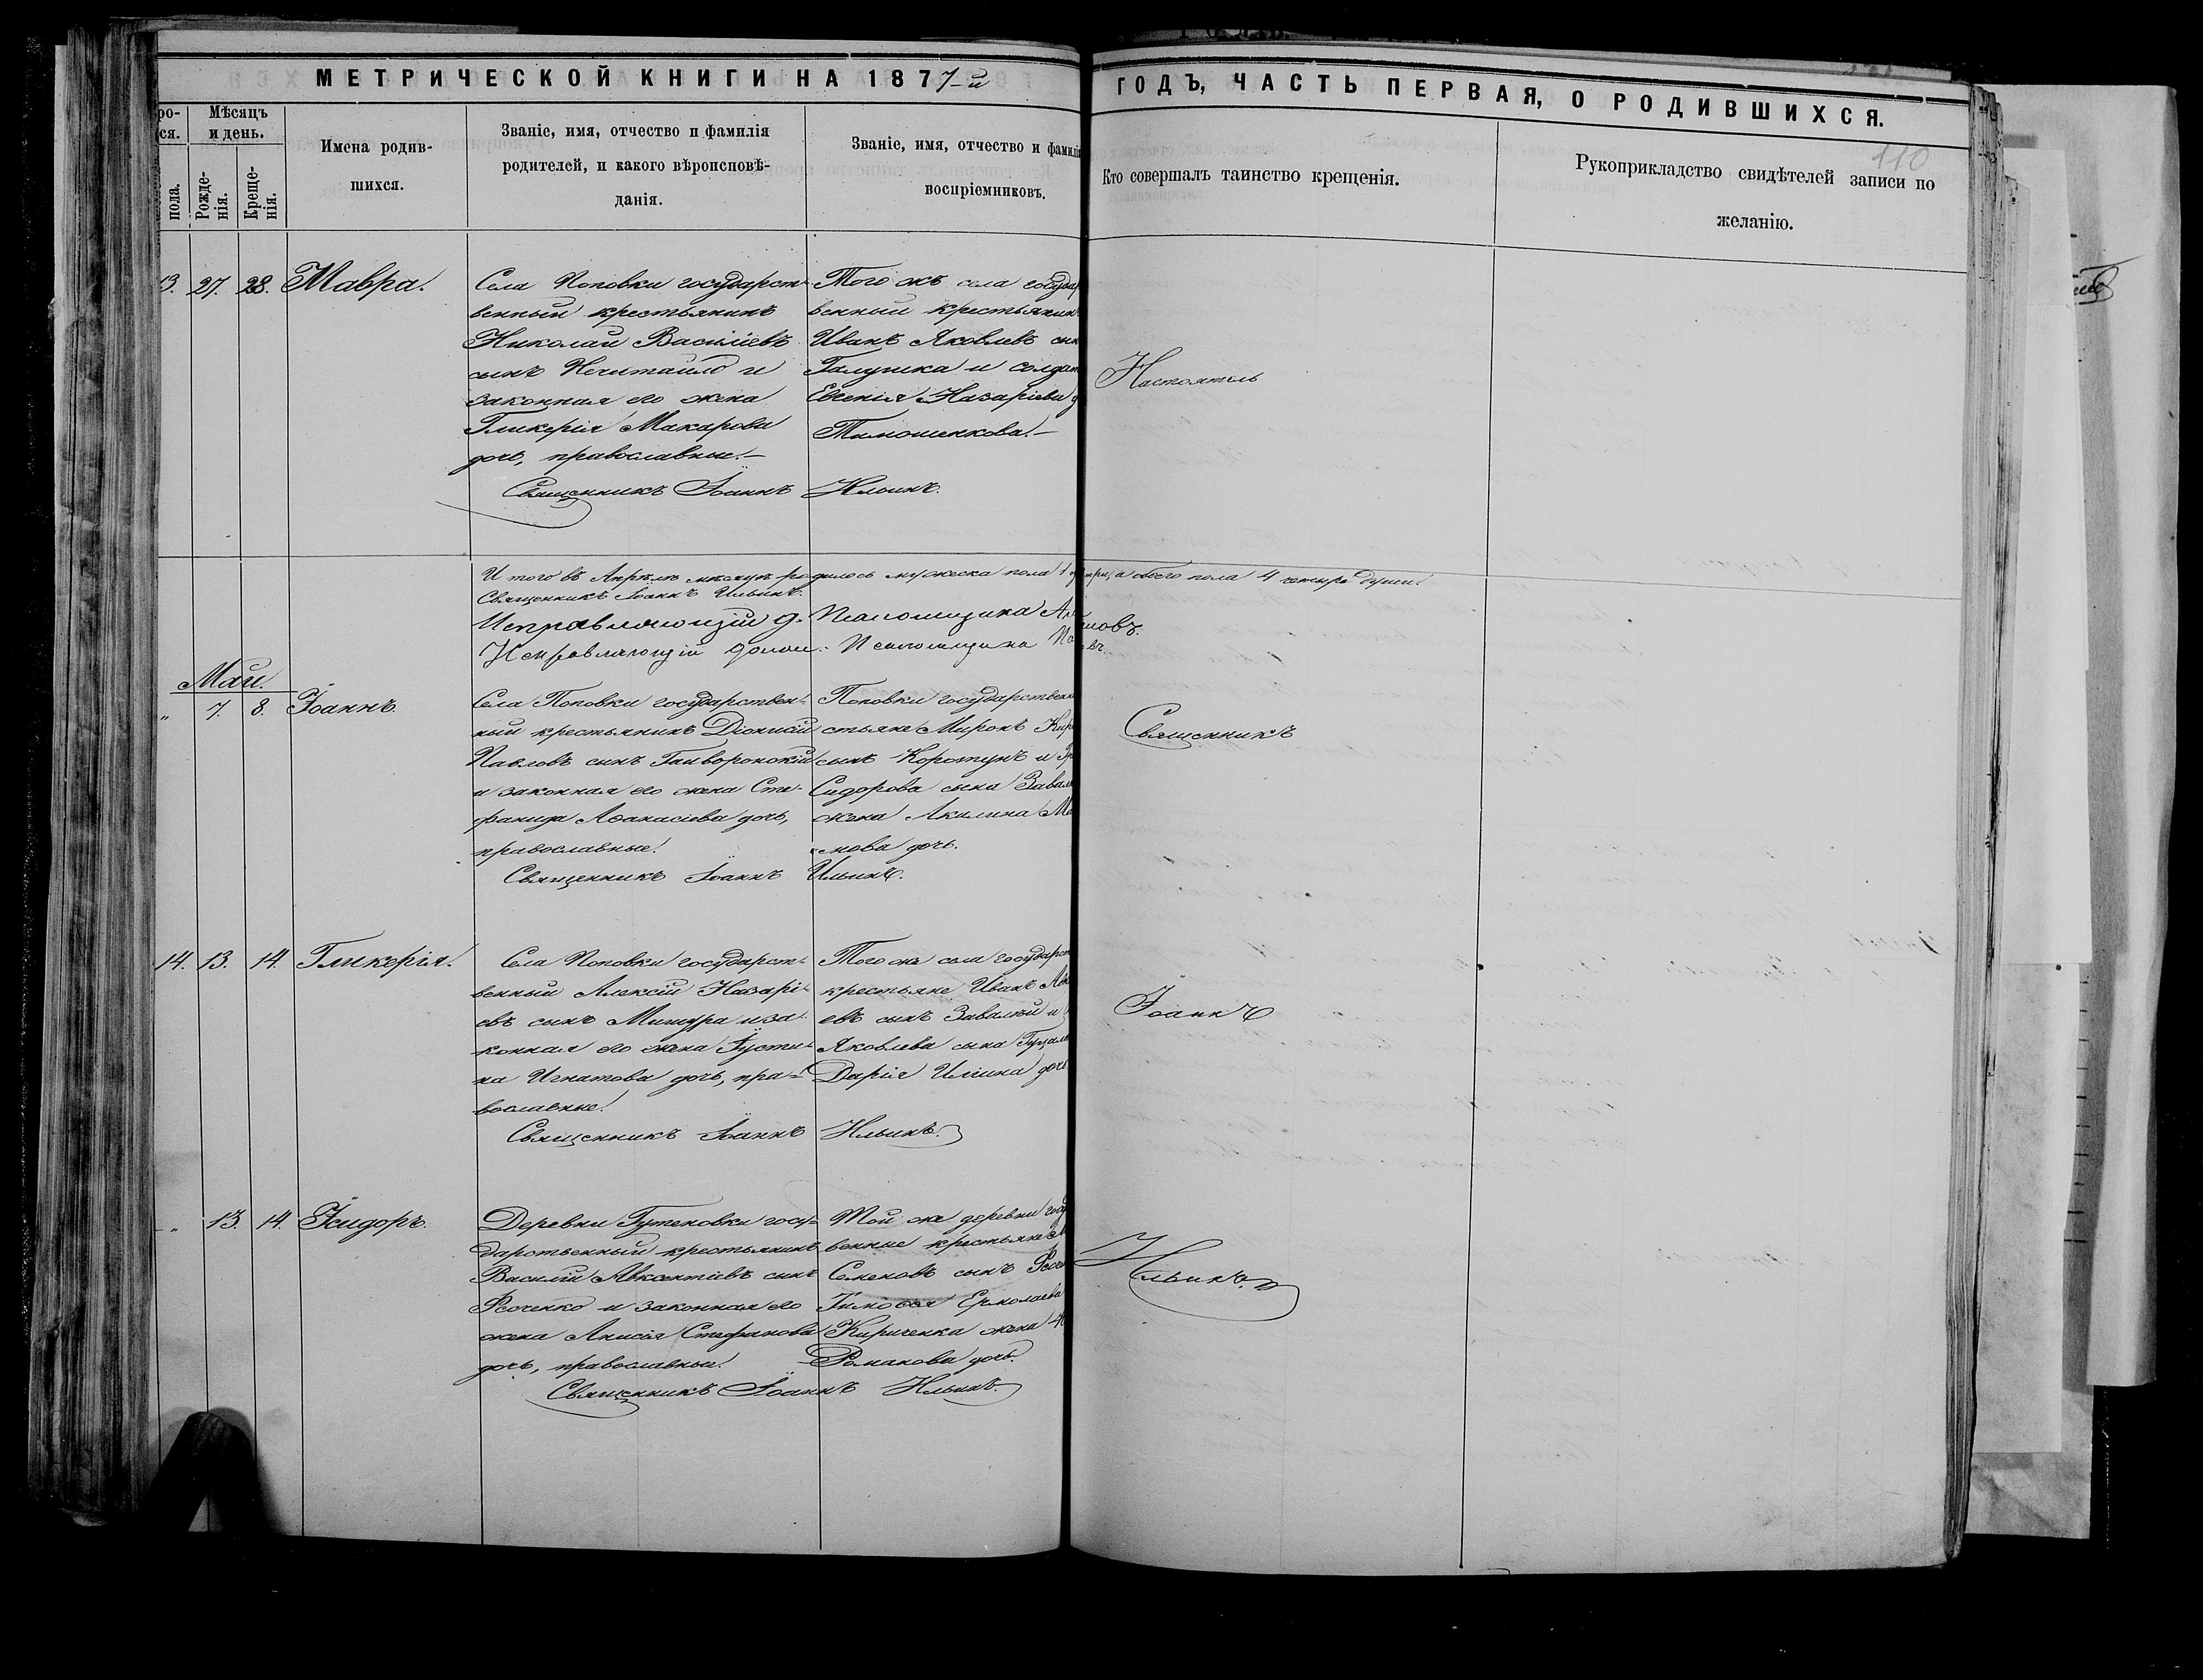 МЕТРИЧЕСКОЙ КНИГИ НА 1877-й
ГОДЪ, ЧАСТЬ ПЕРВАЯ, О РОДИВШИХСЯ.
110
Мѣсяцъ
и день.
пола.
Рожде-
нія.
Креще-
нія.
Имена родив-
шихся.
Званіе, имя, отчество и фамилія
родителей, и какого вѣроисповѣ-
данія.
Званіе, имя, отчество и фамилія
воспріемниковъ.
Кто совершалъ таинство крещенія.
Рукоприкладство свидѣтелей записи по
желанію.
13. 27. 28. Мавра.
Села Поповки государст-
венный крестьянинъ
Николай Василіевъ
сынъ Нечитайло и
законная его жена
Гликерія Макарова
дочь, православные.
Того жъ села государ
венный крестьянинъ
Иванъ Яковлевъ сын
Галушка и солдат
Евгенія Назаріева д
Тимошенкова.
Священникъ Іоаннъ Ильинъ.
Настоятель
Итого въ Апрѣлѣ мѣсяцѣ родилось мужеска пола 1 три, а обоего пола 4 четыре души.
Священникъ Іоаннъ Ильинъ.
Исправляющій д. Псаломщика
Исправляющій должн. Псаломщика
Май.
" 7. 8. Іоаннъ.
Села Поповки государствен-
ный крестьянинъ Діонисій
Павловъ сынъ Гайворонскій
и законная его жена Сте-
фанида Аѳанасіева дочь,
православные.
Поповки государственн
стьяне Миронъ Кир
сынъ Коротунъ и Гр
Сидорова сына Завал
жена Акилина Ма
мова дочь.
Священникъ Іоаннъ Ильинъ.
Священникъ
14. 13. 14. Гликерія.
Села Поповки государст-
венный Алексій Назарі-
евъ сынъ Мищура и за-
конная его жена Іусти-
на Игнатова дочь, пра-
вославные.
Того же села государст
крестьяне Иванъ
евъ сынъ Завалій и
Яковлева сына
Дарія Иліина дочь.
Священникъ Іоаннъ Ильинъ.
Іоаннъ
" 13. 14. Ісидоръ.
Деревни Гутеновки госу-
дарственный крестьянинъ
Василій Авксентіевъ сынъ
Ѳесенко и законная его
жена Анисія Стефанова
дочь, православные.
Той же деревни госу
венные крестьяне
Семеновъ сынъ
Тимоѳея Ермолаева
Кириченка жена
Романова дочь.
Священникъ Іоаннъ Ильинъ.
Ильинъ.